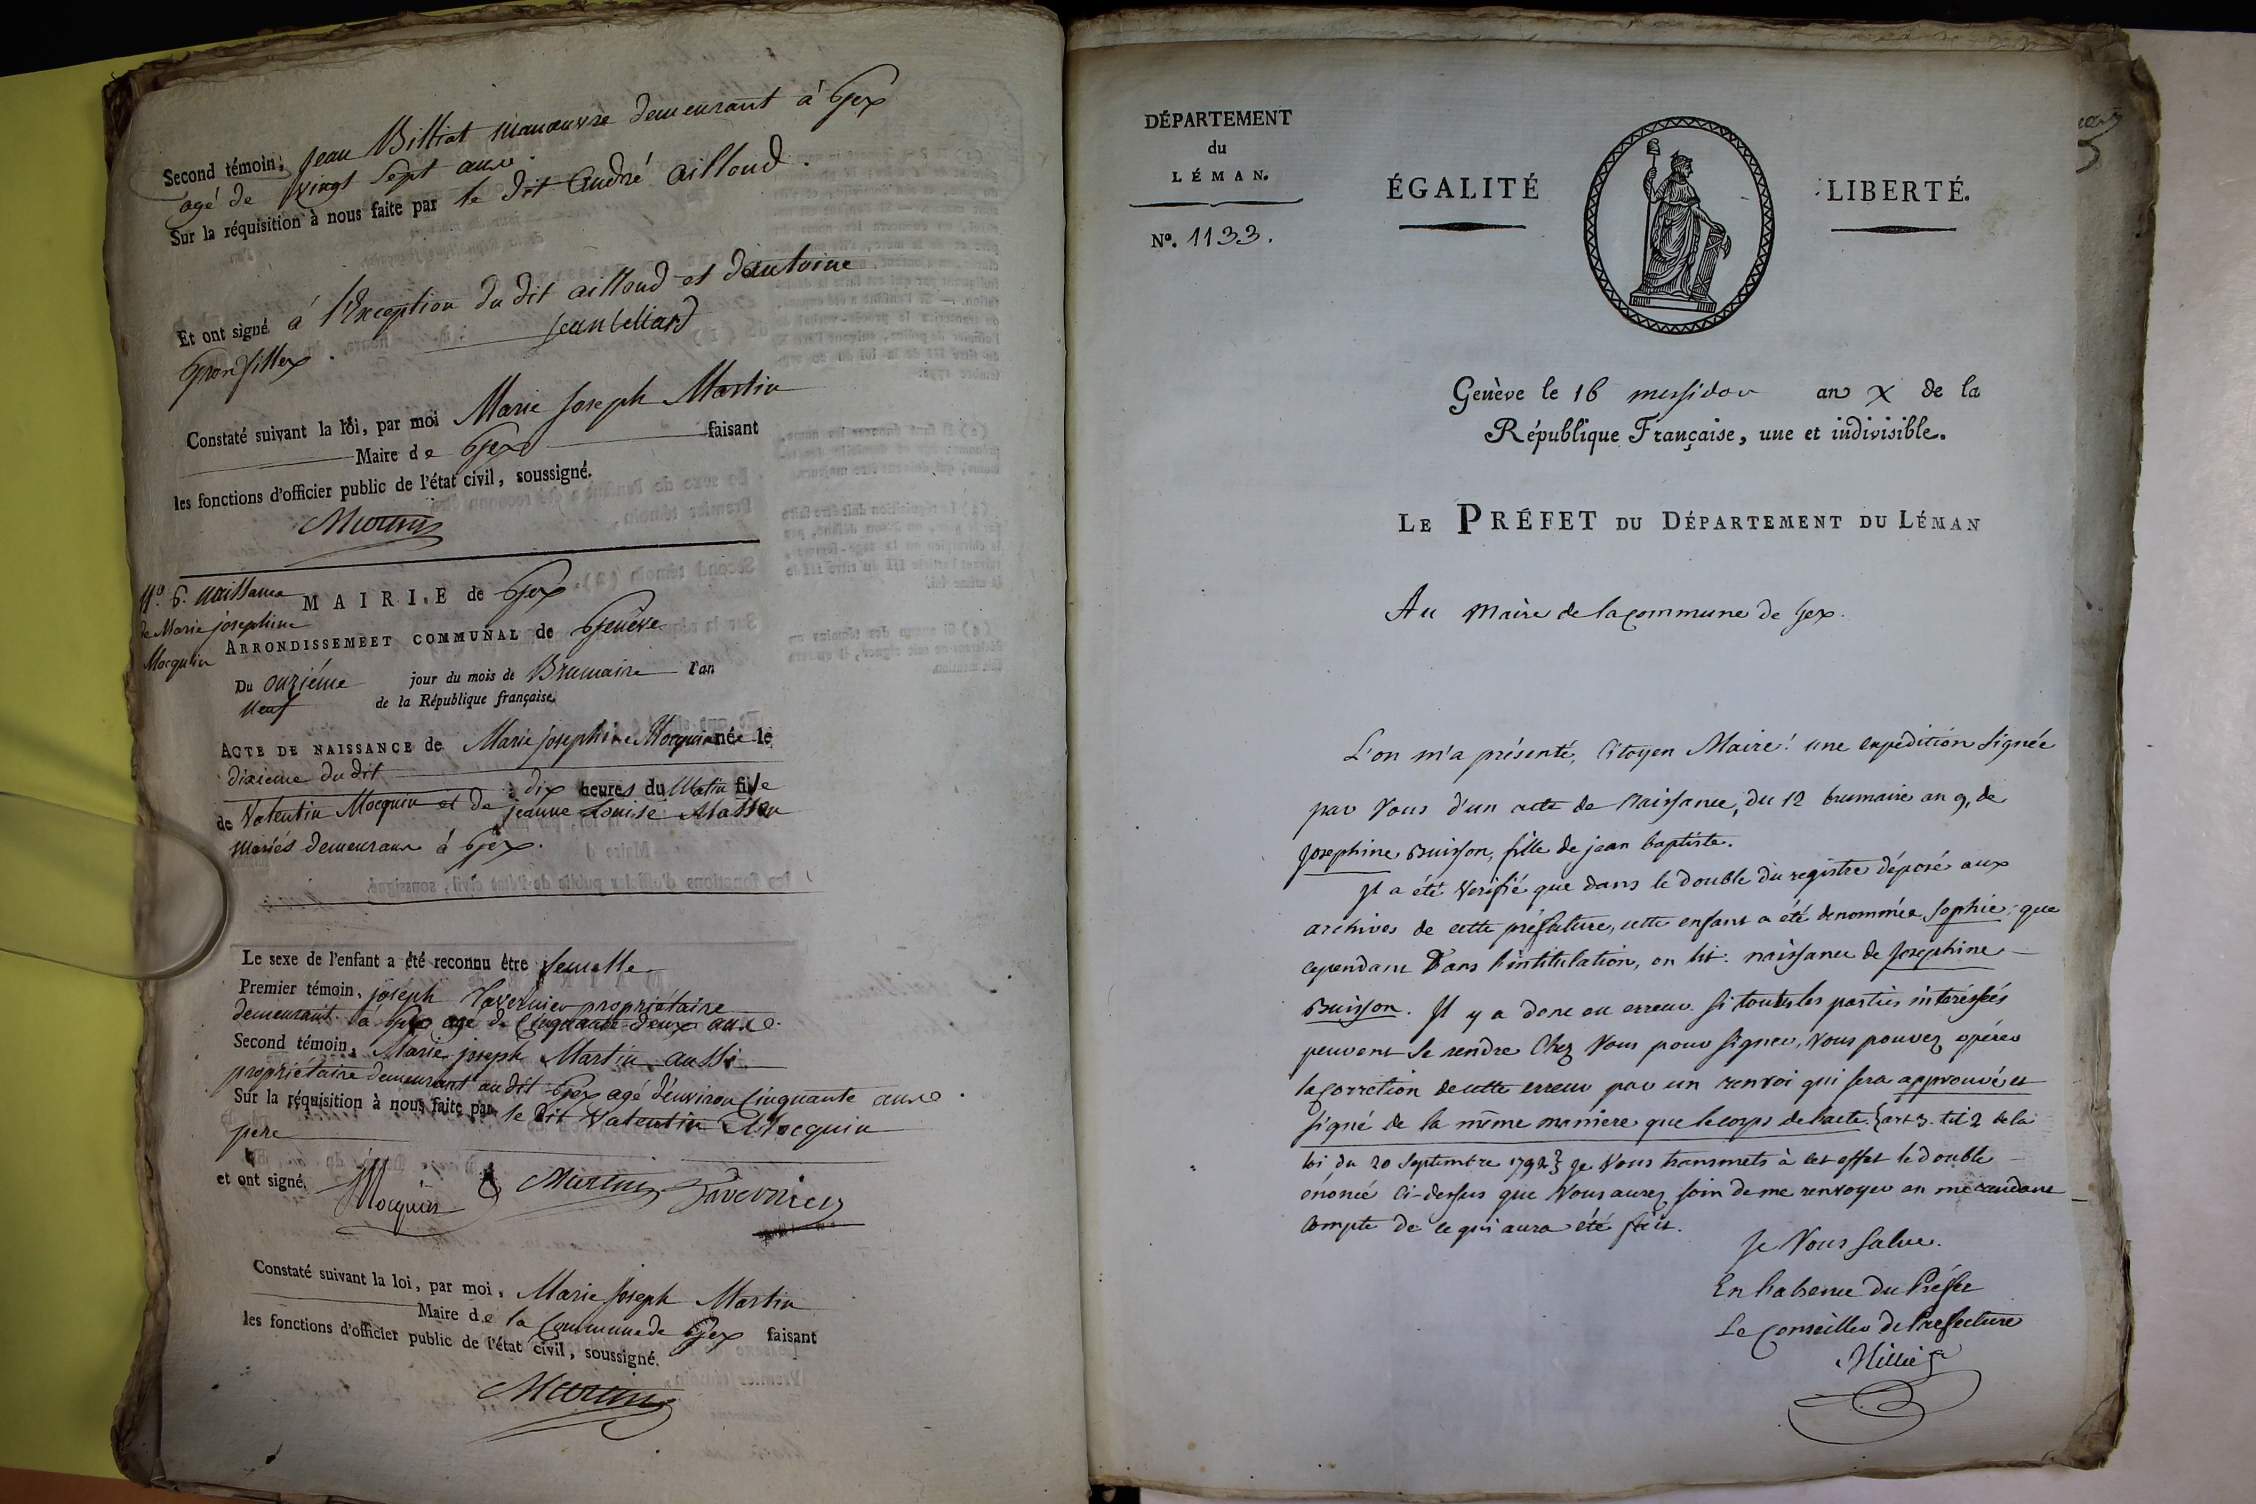 Second témoin, Jean Billiat manœuvre demeurant à Gex
âgé de vingt sept ans.
Sur la réquisition à nous faite par le dit André ailloud.
Et ont signé à l'Exception du dit ailloud et d'antoine
Gronfillex.
jean belliard
Constaté suivant la loi, par moi Marie Joseph Martin
Maire de Gex faisant
les fonctions d'officier public de l'état civil, soussigné.
Martin
N.° 6. naissance
de Marie josephine
Mocquin
MAIRIE de Gex
ARRONDISSEMEET COMMUNAL de Genève
Du onzième jour du mois de Brumaire l'an
neuf de la République française.
ACTE DE NAISSANCE de Marie josephine Mocquin née le
dixieme du dit
à dix heures du Matin fille
de Valentin Mocquin et de jeanne Louise Masson
mariés demeurans à Gex.
Le sexe de l'enfant a été reconnu être femelle
Premier témoin, joseph Tavernier propriétaire
demeurant à Gex agé de Cinquante deux ans.
Second témoin, Marie joseph Martin aussi
propriétaire demeurant audit Gex agé d'environ Cinquante ans.
Sur la réquisition à nous faite par le dit Valentin Mocquin
pere
et ont signé. Mocquin Martin Tavernier
Constaté suivant la loi, par moi, Marie Joseph Martin
Maire de la Commune de Gex faisant
les fonctions d'officier public de l'état civil, soussigné.
Martin
DÉPARTEMENT
du
LÉMAN.
Nº. 1133.
ÉGALITÉ
LIBERTÉ.
Genève le 16 messidor an X de la
République Française, une et indivisible.
LE PRÉFET DU DÉPARTEMENT DU LÉMAN
Au Maire de la commune de Gex.
L'on m'a présenté, Citoyen Maire! une expédition signée
par Vous d'un acte de Naissance, du 12 brumaire an 9, de
Josephine Buisson, fille de jean baptiste.
Il a été Verifié que dans le double du registre déposé aux
archives de cette préfecture, cette enfant a été denommée Sophie; que
cependant Dans l'intitulation, on lit: naissance de Josephine
Buisson. Il y a donc eu erreur. Si toutes les parties intéressées
peuvent Se rendre Chez Vous pour signer, Vous pouvez opérer
la correction de cette erreur par un renvoi qui sera approuvé et
signé de la même maniere que le corps de l'acte {art 3. tit 2 de la
loi du 20 Septembre 1792} Je Vous transmets à cet effet le double
énoncé Ci-dessus que Vous aurez soin de me renvoyer en me rendant
Compte de ce qui aura été fait.
Je Vous salue.
En l'absence du Préfet
Le Conseiller de Prefecture